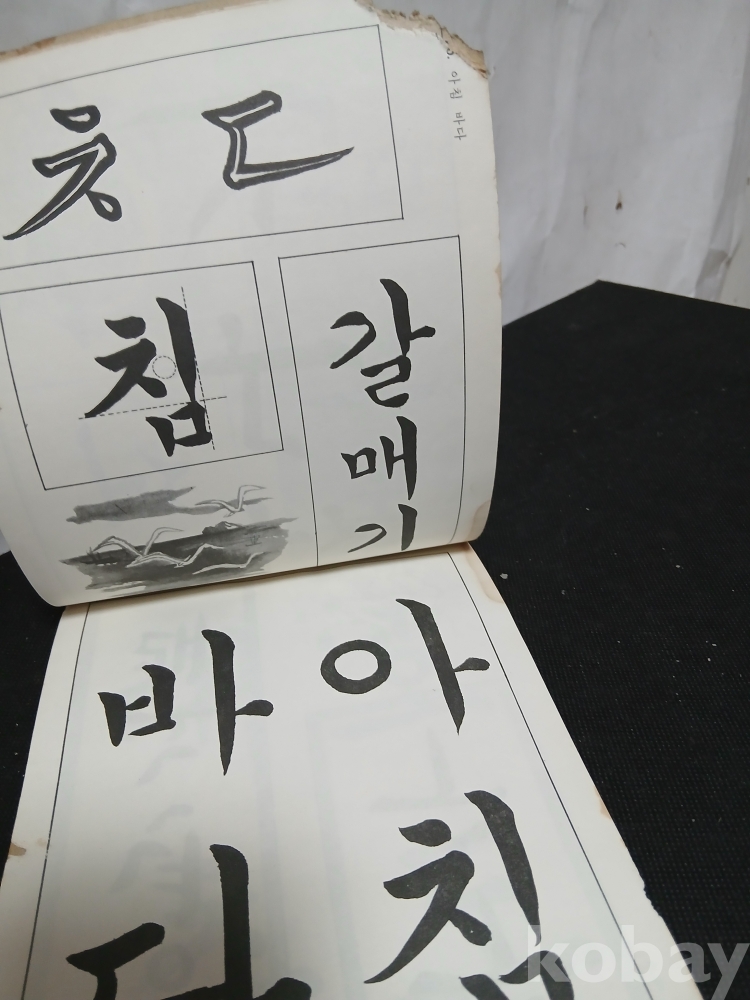 아침 바다
ㅊ ㄷ
침
갈매기
아침
바다
kobay